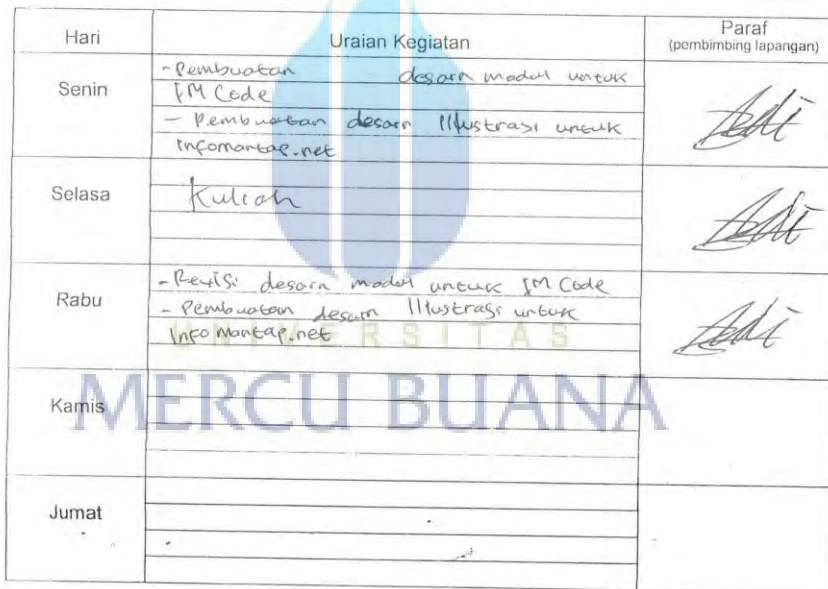 Hari Uraian Kegiatan Paraf
(pembimbing lapangan)
Senin
- Pembuatan desain modul untuk
IM Code
- Pembuatan desain Illustrasi untuk
Infomantap.net
Selasa
Kuliah
Rabu
- Revisi desain modul untuk IM Code
- Pembuatan desain Illustrasi untuk
Infomantap.net
UNIVERSITAS
MERCU BUANA
Kamis
Jumat